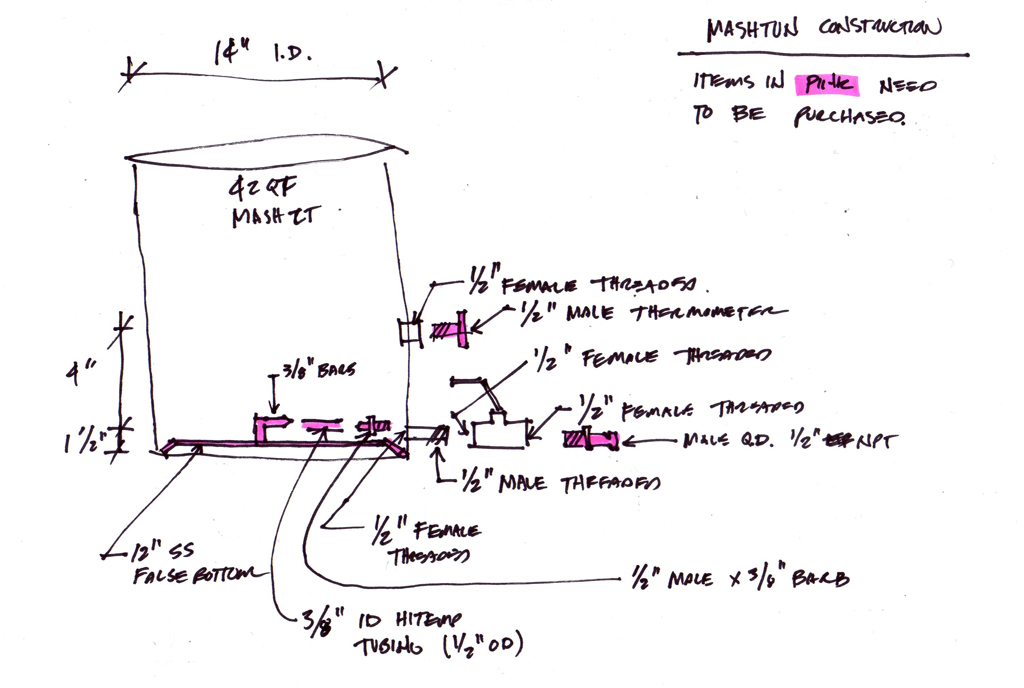 MASHTUN CONSTRUCTION
ITEMS IN PINK NEED
TO BE PURCHASED.
14" I.D.
42QT
MASH TUN
1/2" FEMALE THREADED.
1/2" MALE THERMOMETER
1/2" FEMALE THREADED
4"
3/8" BARB
1/2" FEMALE THREADED
1 1/2"
MALE Q.D. 1/2" NPT
1/2" MALE THREADED
1/2" FEMALE
THREADED
12" SS
FALSE BOTTOM
1/2" MALE x 3/8" BARB
3/8" ID HITEMP
TUBING (1/2" OD)